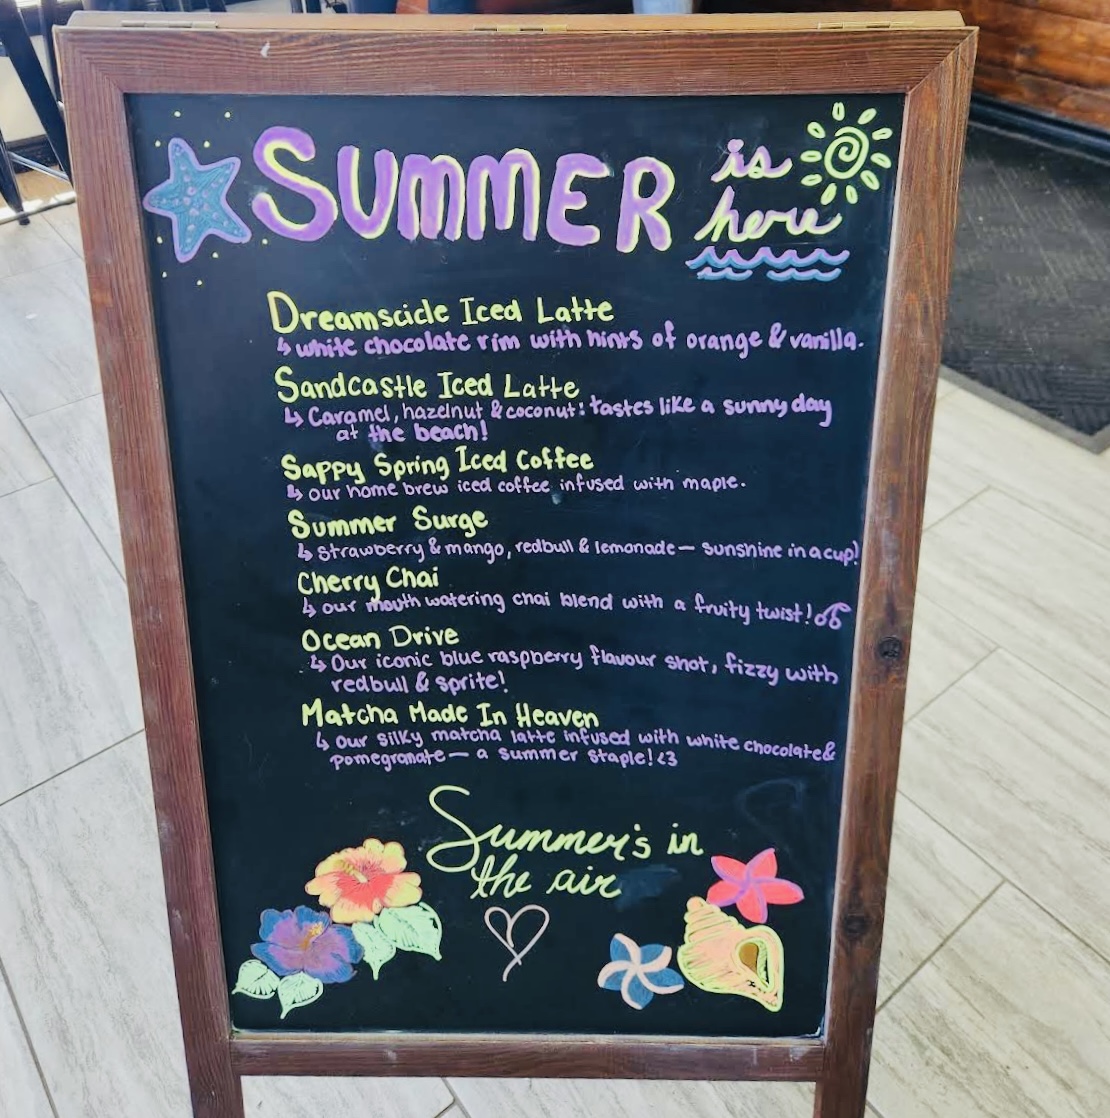 SUMMER is here
Dreamscicle Iced Latte
↳ white chocolate rim with hints of orange & vanilla.
Sandcastle Iced Latte
↳ Caramel, hazelnut & coconut: tastes like a sunny day
at the beach!
Sappy Spring Iced Coffee
↳ our home brew iced coffee infused with maple.
Summer Surge
↳ strawberry & mango, redbull & lemonade — sunshine in a cup!
Cherry Chai
↳ our mouth watering chai blend with a fruity twist!
Ocean Drive
↳ Our iconic blue raspberry flavour shot, fizzy with
redbull & sprite!
Matcha Made In Heaven
↳ our silky matcha latte infused with white chocolate &
pomegranate — a summer staple! <3
Summer's in
the air